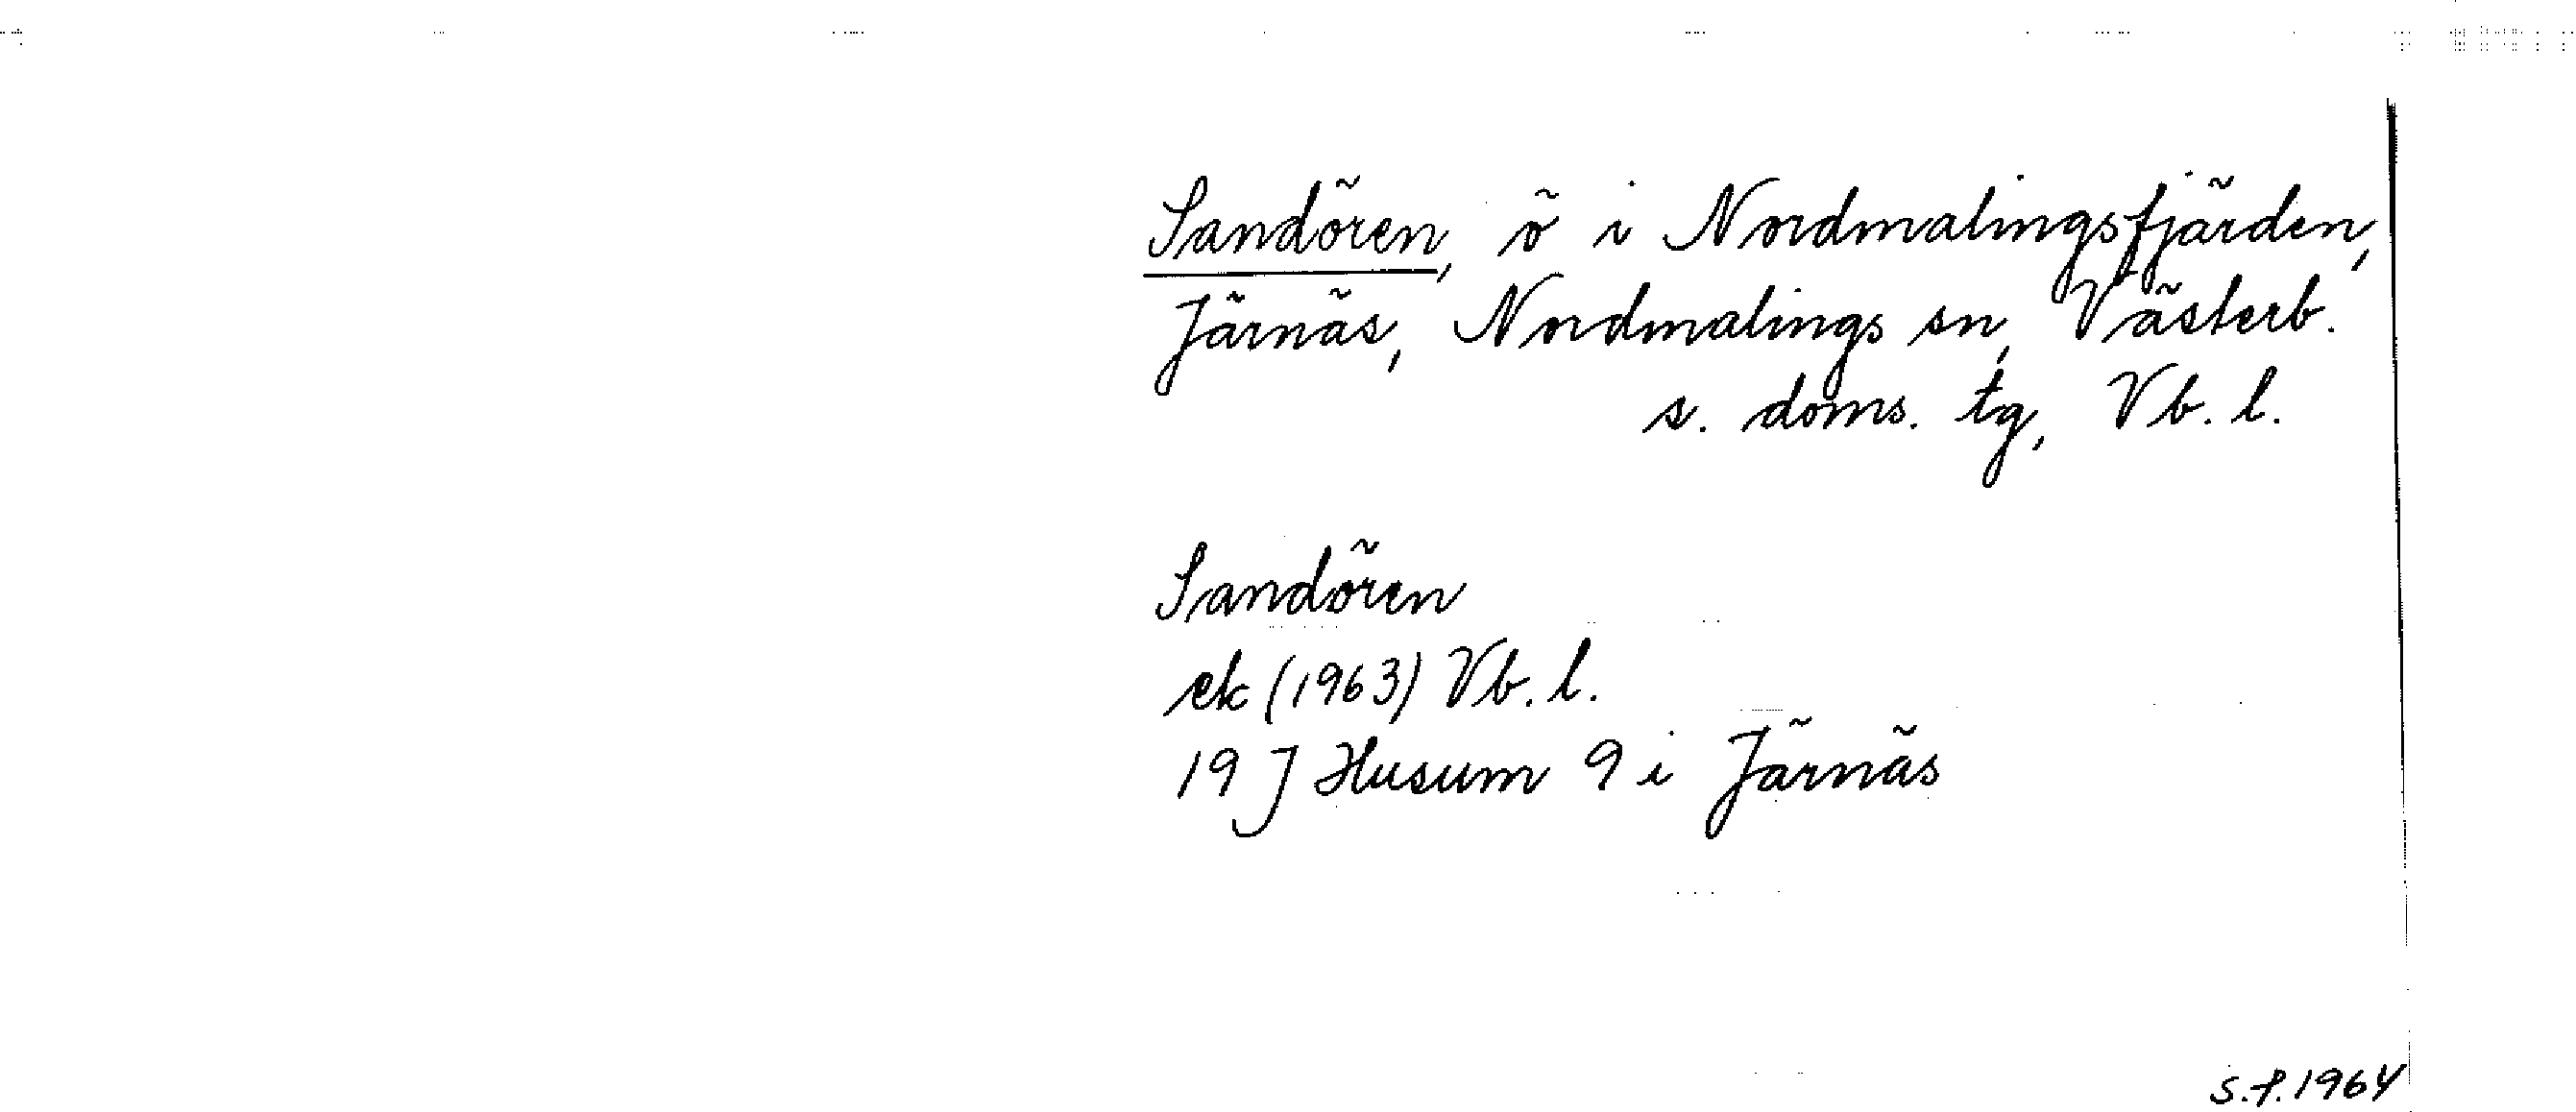 Sandören, ö i Nordmalingsfjärden,
Järnäs, Nordmalings sn, Västerb.
s. doms. tg, Vb. l.
Sandören
ek (1963) Vb. l.
19 J Husum 9 i Järnäs
S.f. 1964